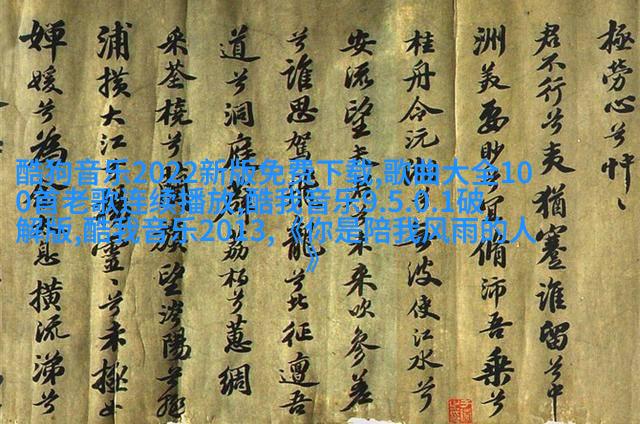 極勞心兮忡
君不行兮夷猶蹇誰留兮中
洲美要眇兮宜脩沛吾乘兮
桂舟令沅兮波使江水兮
安流望未來吹參差
兮誰思駕龍兮北征邅吾
道兮洞庭荔柏兮蕙綢
采荃橈兮望涔陽兮極
浦橫大江靈兮未極女
嬋媛兮為息橫流涕兮
酷狗音乐2022新版免费下载,歌曲大全10
0首老歌连续播放,酷我音乐9.5.0.1破
解版,酷我音乐2013,《你是陪我风雨的人
》